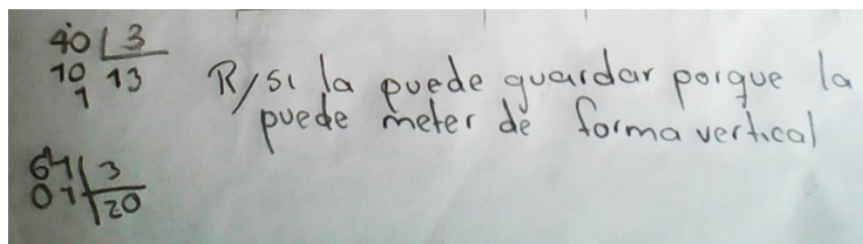 40 | 3
10 13
1
R/si la puede guardar porque la
puede meter de forma vertical
64 | 3
04 20